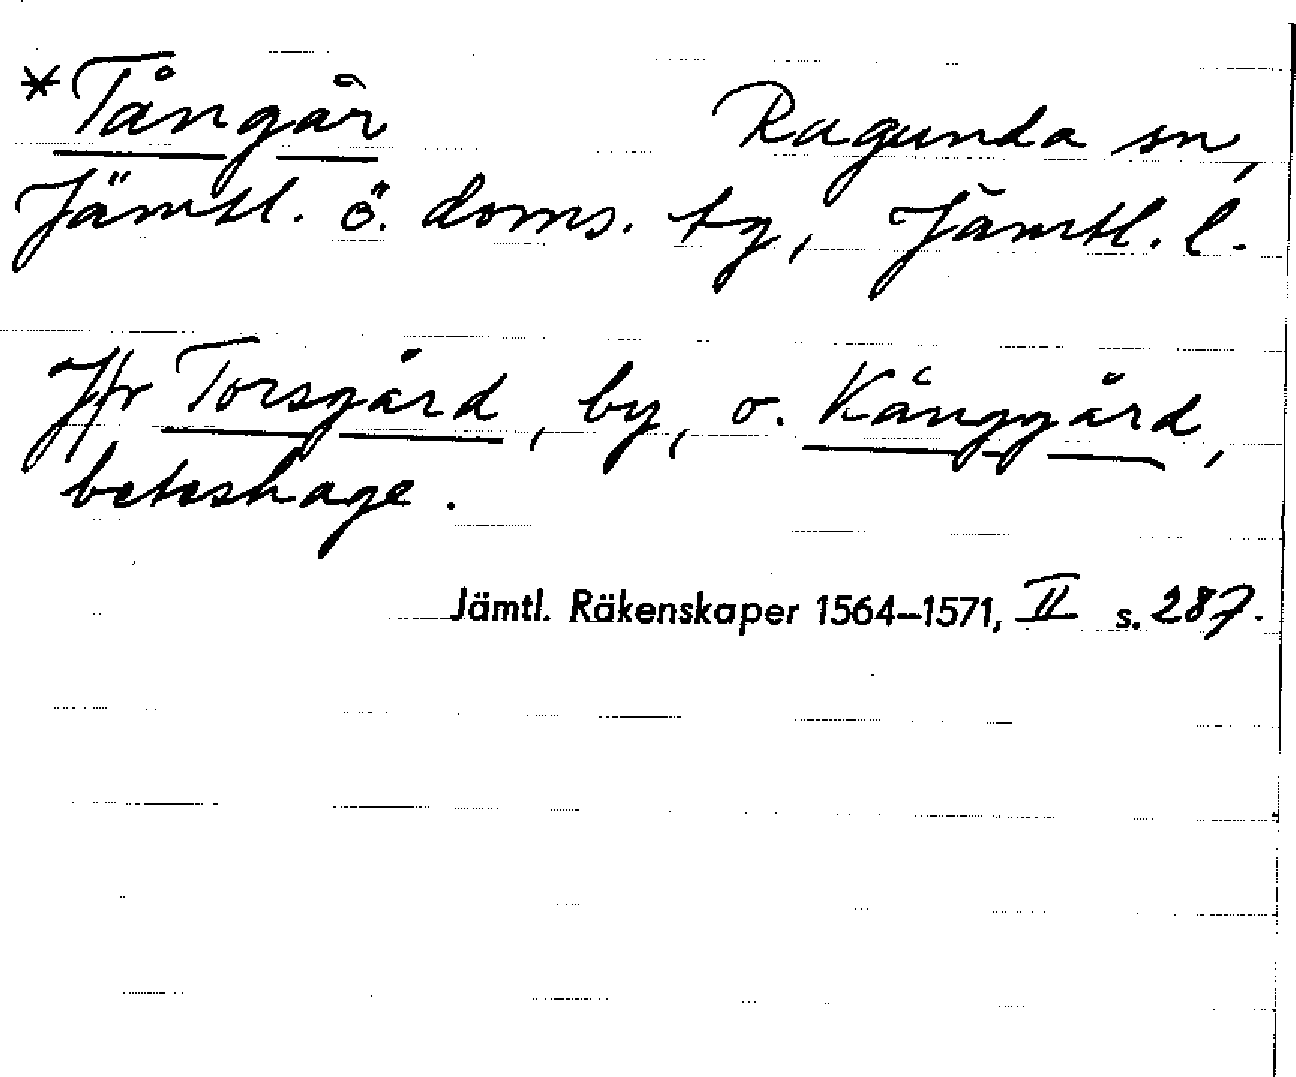 *Tångår Ragunda sn,
Jämtl. ö. doms. tg, Jämtl. l.
Jfr Torsgård, by, o. Kånggård,
beteshage.
Jämtl. Räkenskaper 1564–1571, II s. 287.